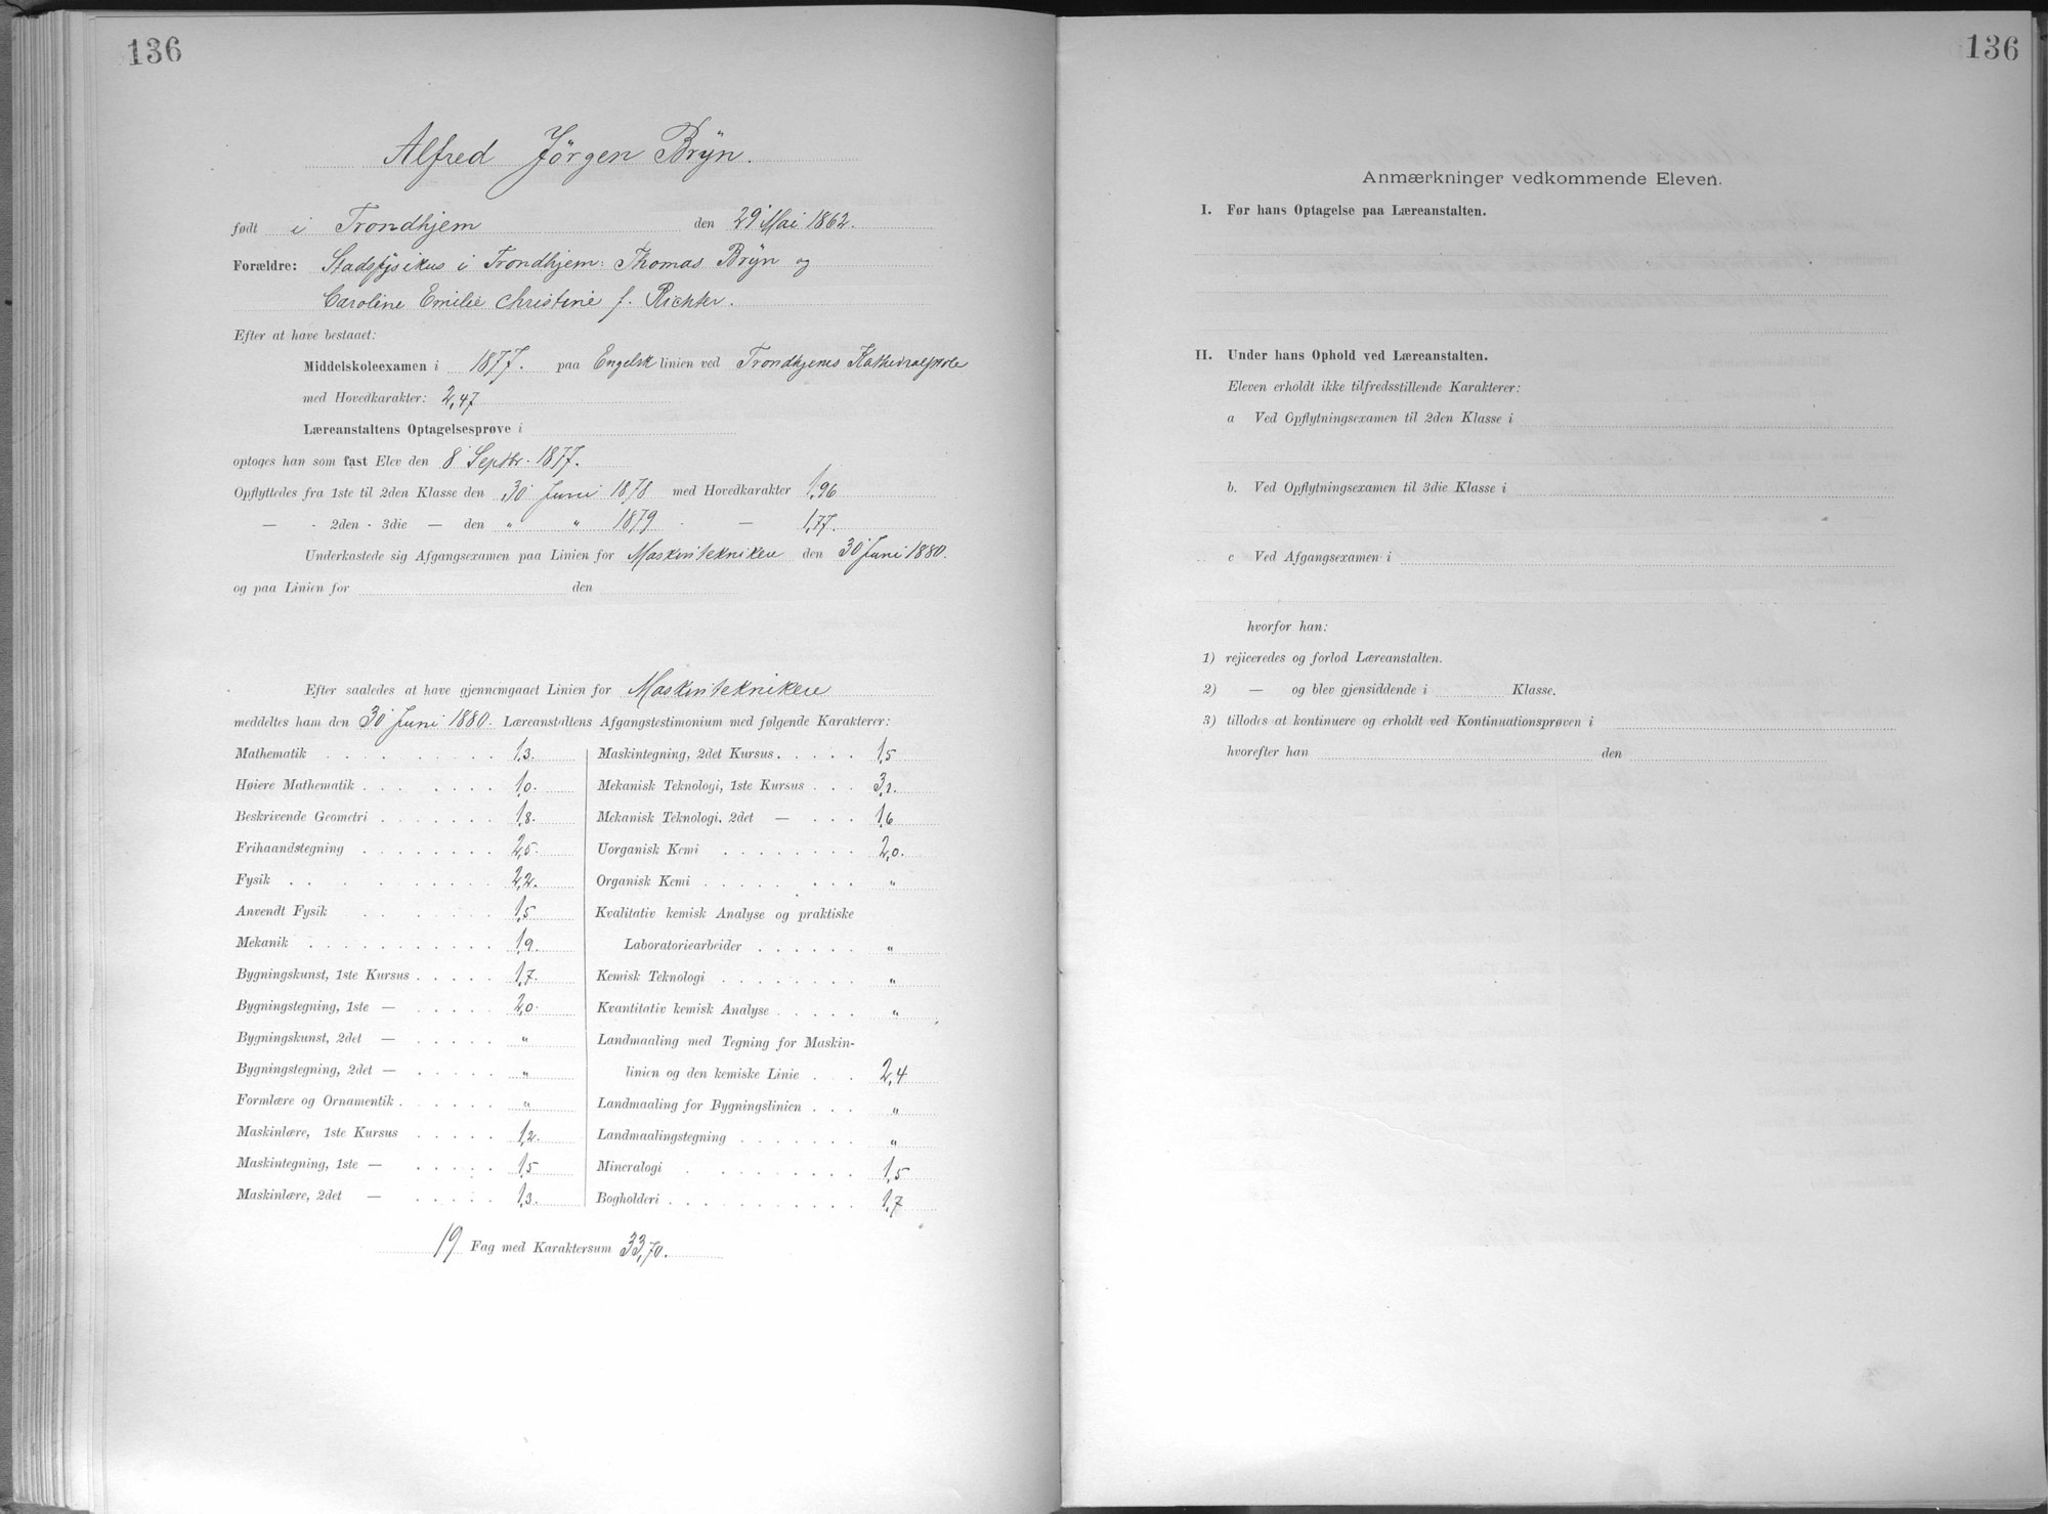 136
Alfred Jörgen Brÿn.
født i Trondhjem den 29' Mai 1862.
Forældre: Stadsfysikus i Trondhjem: Thomas Brÿn og
Caroline Emilie Christine f. Richter.
Efter at have bestaaet:
Middelskoleexamen i 1877. paa Engelsk linien ved Trondhjems Kathedralskole
med Hovedkarakter: 2,47
Læreanstaltens Optagelsesprøve i
optoges han som fast Elev den 8' Septbr. 1877.
Opflyttedes fra 1ste til 2den Klasse den 30' Juni 1878 med Hovedkarakter 1,96
— - 2den - 3die — den " " 1879 - — 1,77.
Underkastede sig Afgangsexamen paa Linien for Maskinteknikeu den 30' Juni 1880.
og paa Linien for den
Efter saaledes at have gjennemgaaet Linien for Maskinteknikeu
meddeltes ham den 30' Juni 1880. Læreanstaltens Afgangstestimonium med følgende Karakterer:
Mathematik . . . . . . . . . 1,3.
Høiere Mathematik . . . . . . 1,0.
Beskrivende Geometri . . . . . . 1,8.
Frihaandstegning . . . . . . . . 2,5.
Fysik . . . . . . . . . . 2,2.
Anvendt Fysik . . . . . . 1,5
Mekanik . . . . . . . . . . 1,9.
Bygningskunst, 1ste Kursus . . . . . 1,7.
Bygningstegning, 1ste — . . . . . 2,0.
Bygningskunst, 2det — . . . . . "
Bygningstegning, 2det — . . . . . "
Formlære og Ornamentik . . . . . . "
Maskinlære, 1ste Kursus . . . . . 1,2.
Maskintegning, 1ste — . . . . . 1,5
Maskinlære, 2det — . . . . . 1,3.
Maskintegning, 2det Kursus . . . . . 1,5
Mekanisk Teknologi, 1ste Kursus . . . 3,2.
Mekanisk Teknologi, 2det — . . . 1,6
Uorganisk Kemi . . . . . . . . 2,0.
Organisk Kemi . . . . . . . . . "
Kvalitativ kemisk Analyse og praktiske
Laboratoriearbeider . . . . . . "
Kemisk Teknologi . . . . . . . . "
Kvantitativ kemisk Analyse . . . . . "
Landmaaling med Tegning for Maskin-
linien og den kemiske Linie . . . 2,4
Landmaaling for Bygningslinien . . . "
Landmaalingstegning . . . . . . . "
Mineralogi . . . . . . . . . 1,5
Bogholderi . . . . . . . . . . . 1,7
19 Fag med Karaktersum 33,70.
136
Anmærkninger vedkommende Eleven.
I. Før hans Optagelse paa Læreanstalten.
II. Under hans Ophold ved Læreanstalten.
Eleven erholdt ikke tilfredsstillende Karakterer:
a Ved Opflytningsexamen til 2den Klasse i
b. Ved Opflytningsexamen til 3die Klasse i
c Ved Afgangsexamen i
hvorfor han:
1) rejiceredes og forlod Læreanstalten.
2) — og blev gjensiddende i Klasse.
3) tillodes at kontinuere og erholdt ved Kontinuationsprøven i
hvorefter han den